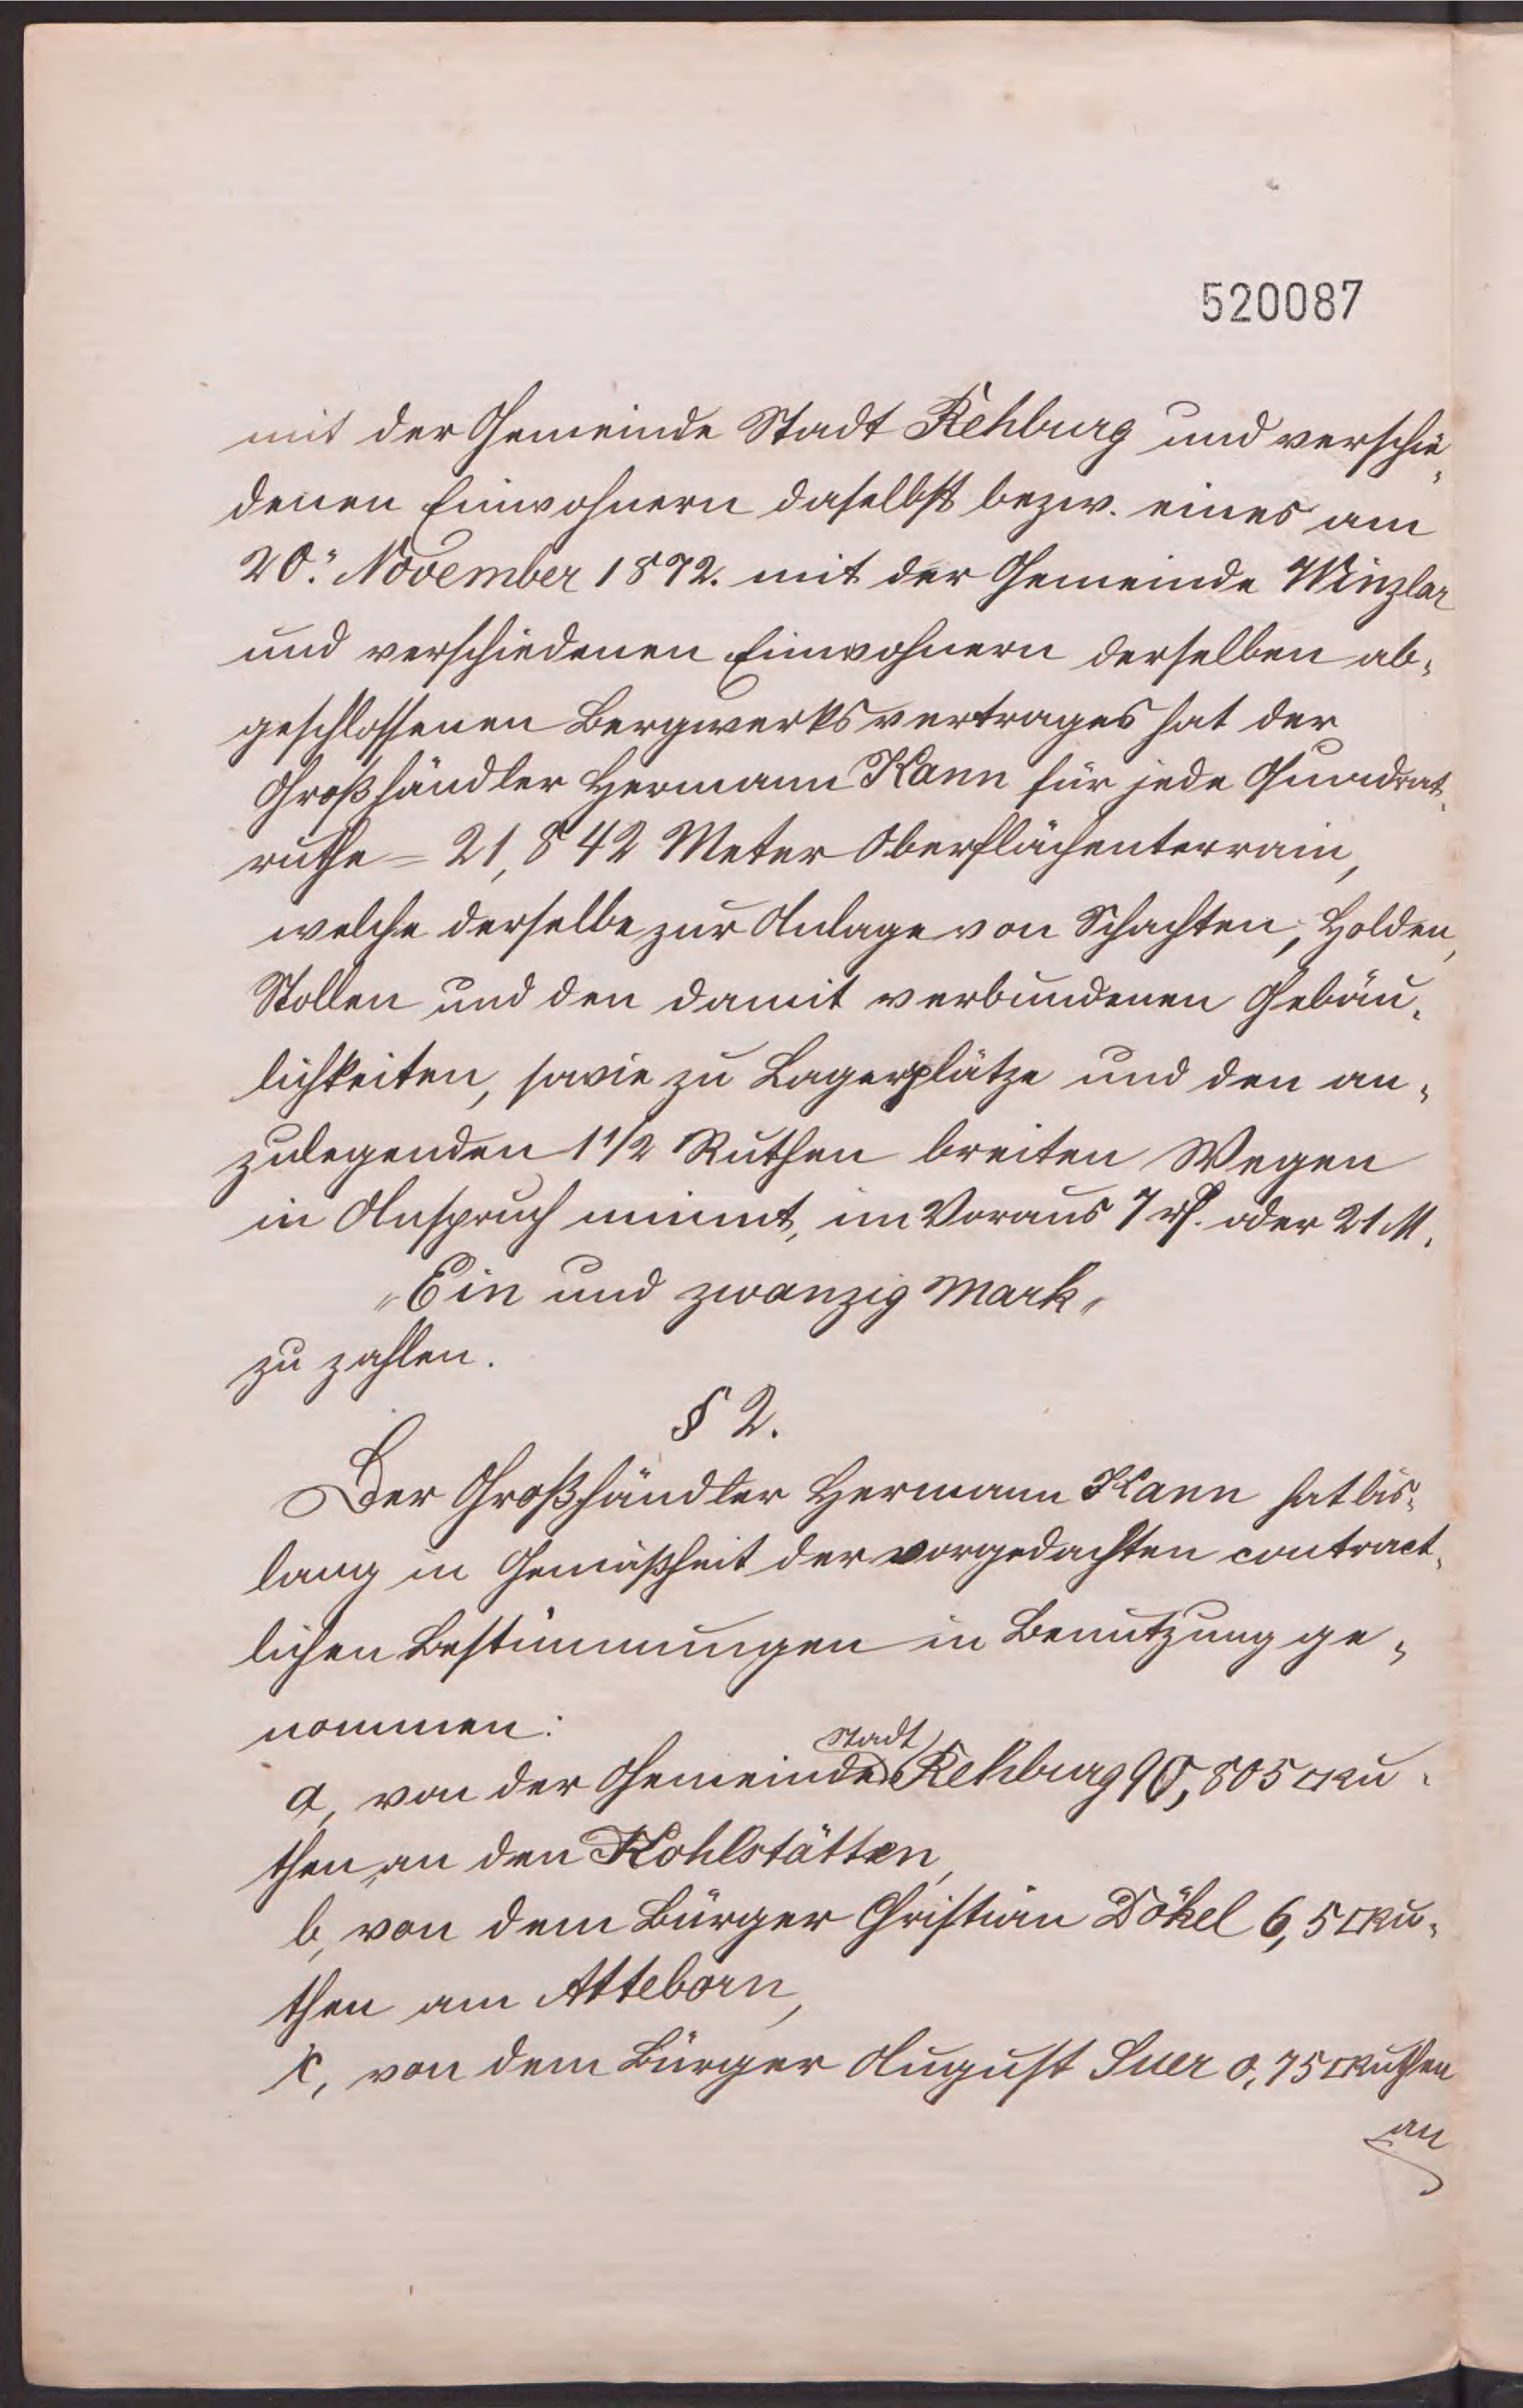 520087
mit der Gemeinde Stadt Rehburg und verschie-
denen Einwohnern daselbst bezw. eines am
20. November 1872. mit der Gemeinde Winzlar
und verschiedenen Einwohnern derselben ab-
geschlossenen Bergwerksvertrages hat der
Großhändler Hermann Kann für jede Quadrat-
ruthe = 21,842 Meter Oberflächenterrain,
welche derselbe zur Anlage von Schachten, Holden,
Stollen und den damit verbundenen Gebäu-
lichkeiten, sowie zu Lagerplätze und den an-
zulegenden 1 1/2 Ruthen breiten Wegen
in Anspruch nimmt, im Voraus 7 rℓ. oder 21 M.
"Ein und zwanzig Mark"
zu zahlen.
§ 2.
Der Großhändler Hermann Kann hat bis-
lang in Gemäßheit der vorgedachten contract-
lichen Bestimmungen in Benutzung ge-
nommen:
a, von der Gemeinde Stadt Rehburg 90,805 □Ru-
then an den Kohlstätten,
b, von dem Bürger Christian Dökel 6,5 □Ru-
then am Atteborn,
c, von dem Bürger August Suer 0,75 □Ruthen
an